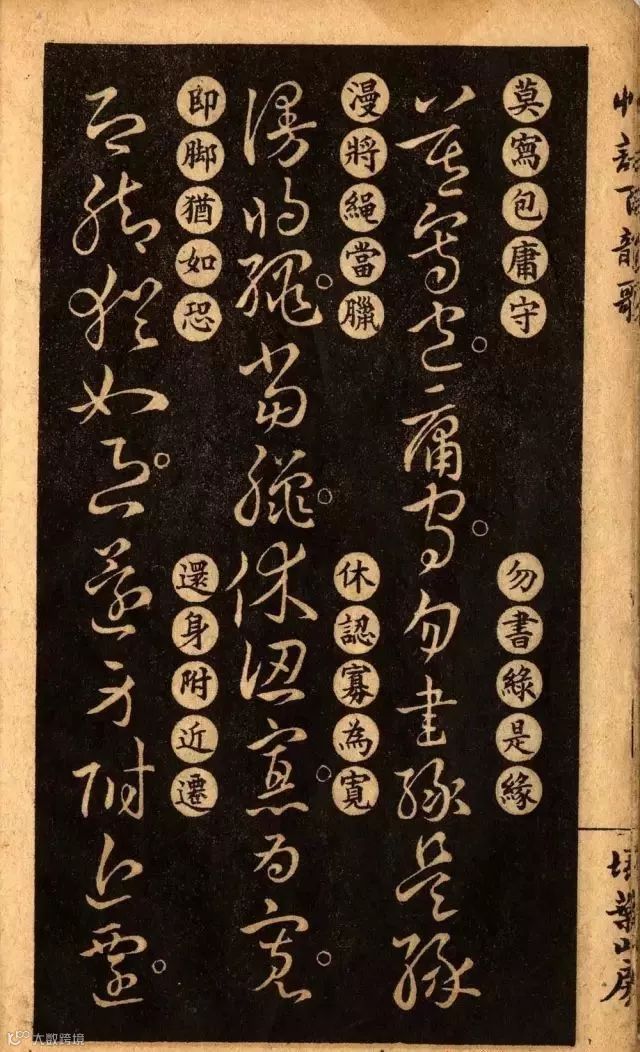 莫寫包庸守
勿書綠是緣
漫將繩當臘
休認寡為寬
即脚猶如恐
還身附近遷
草訣百韻歌
掃葉山房
大数跨境